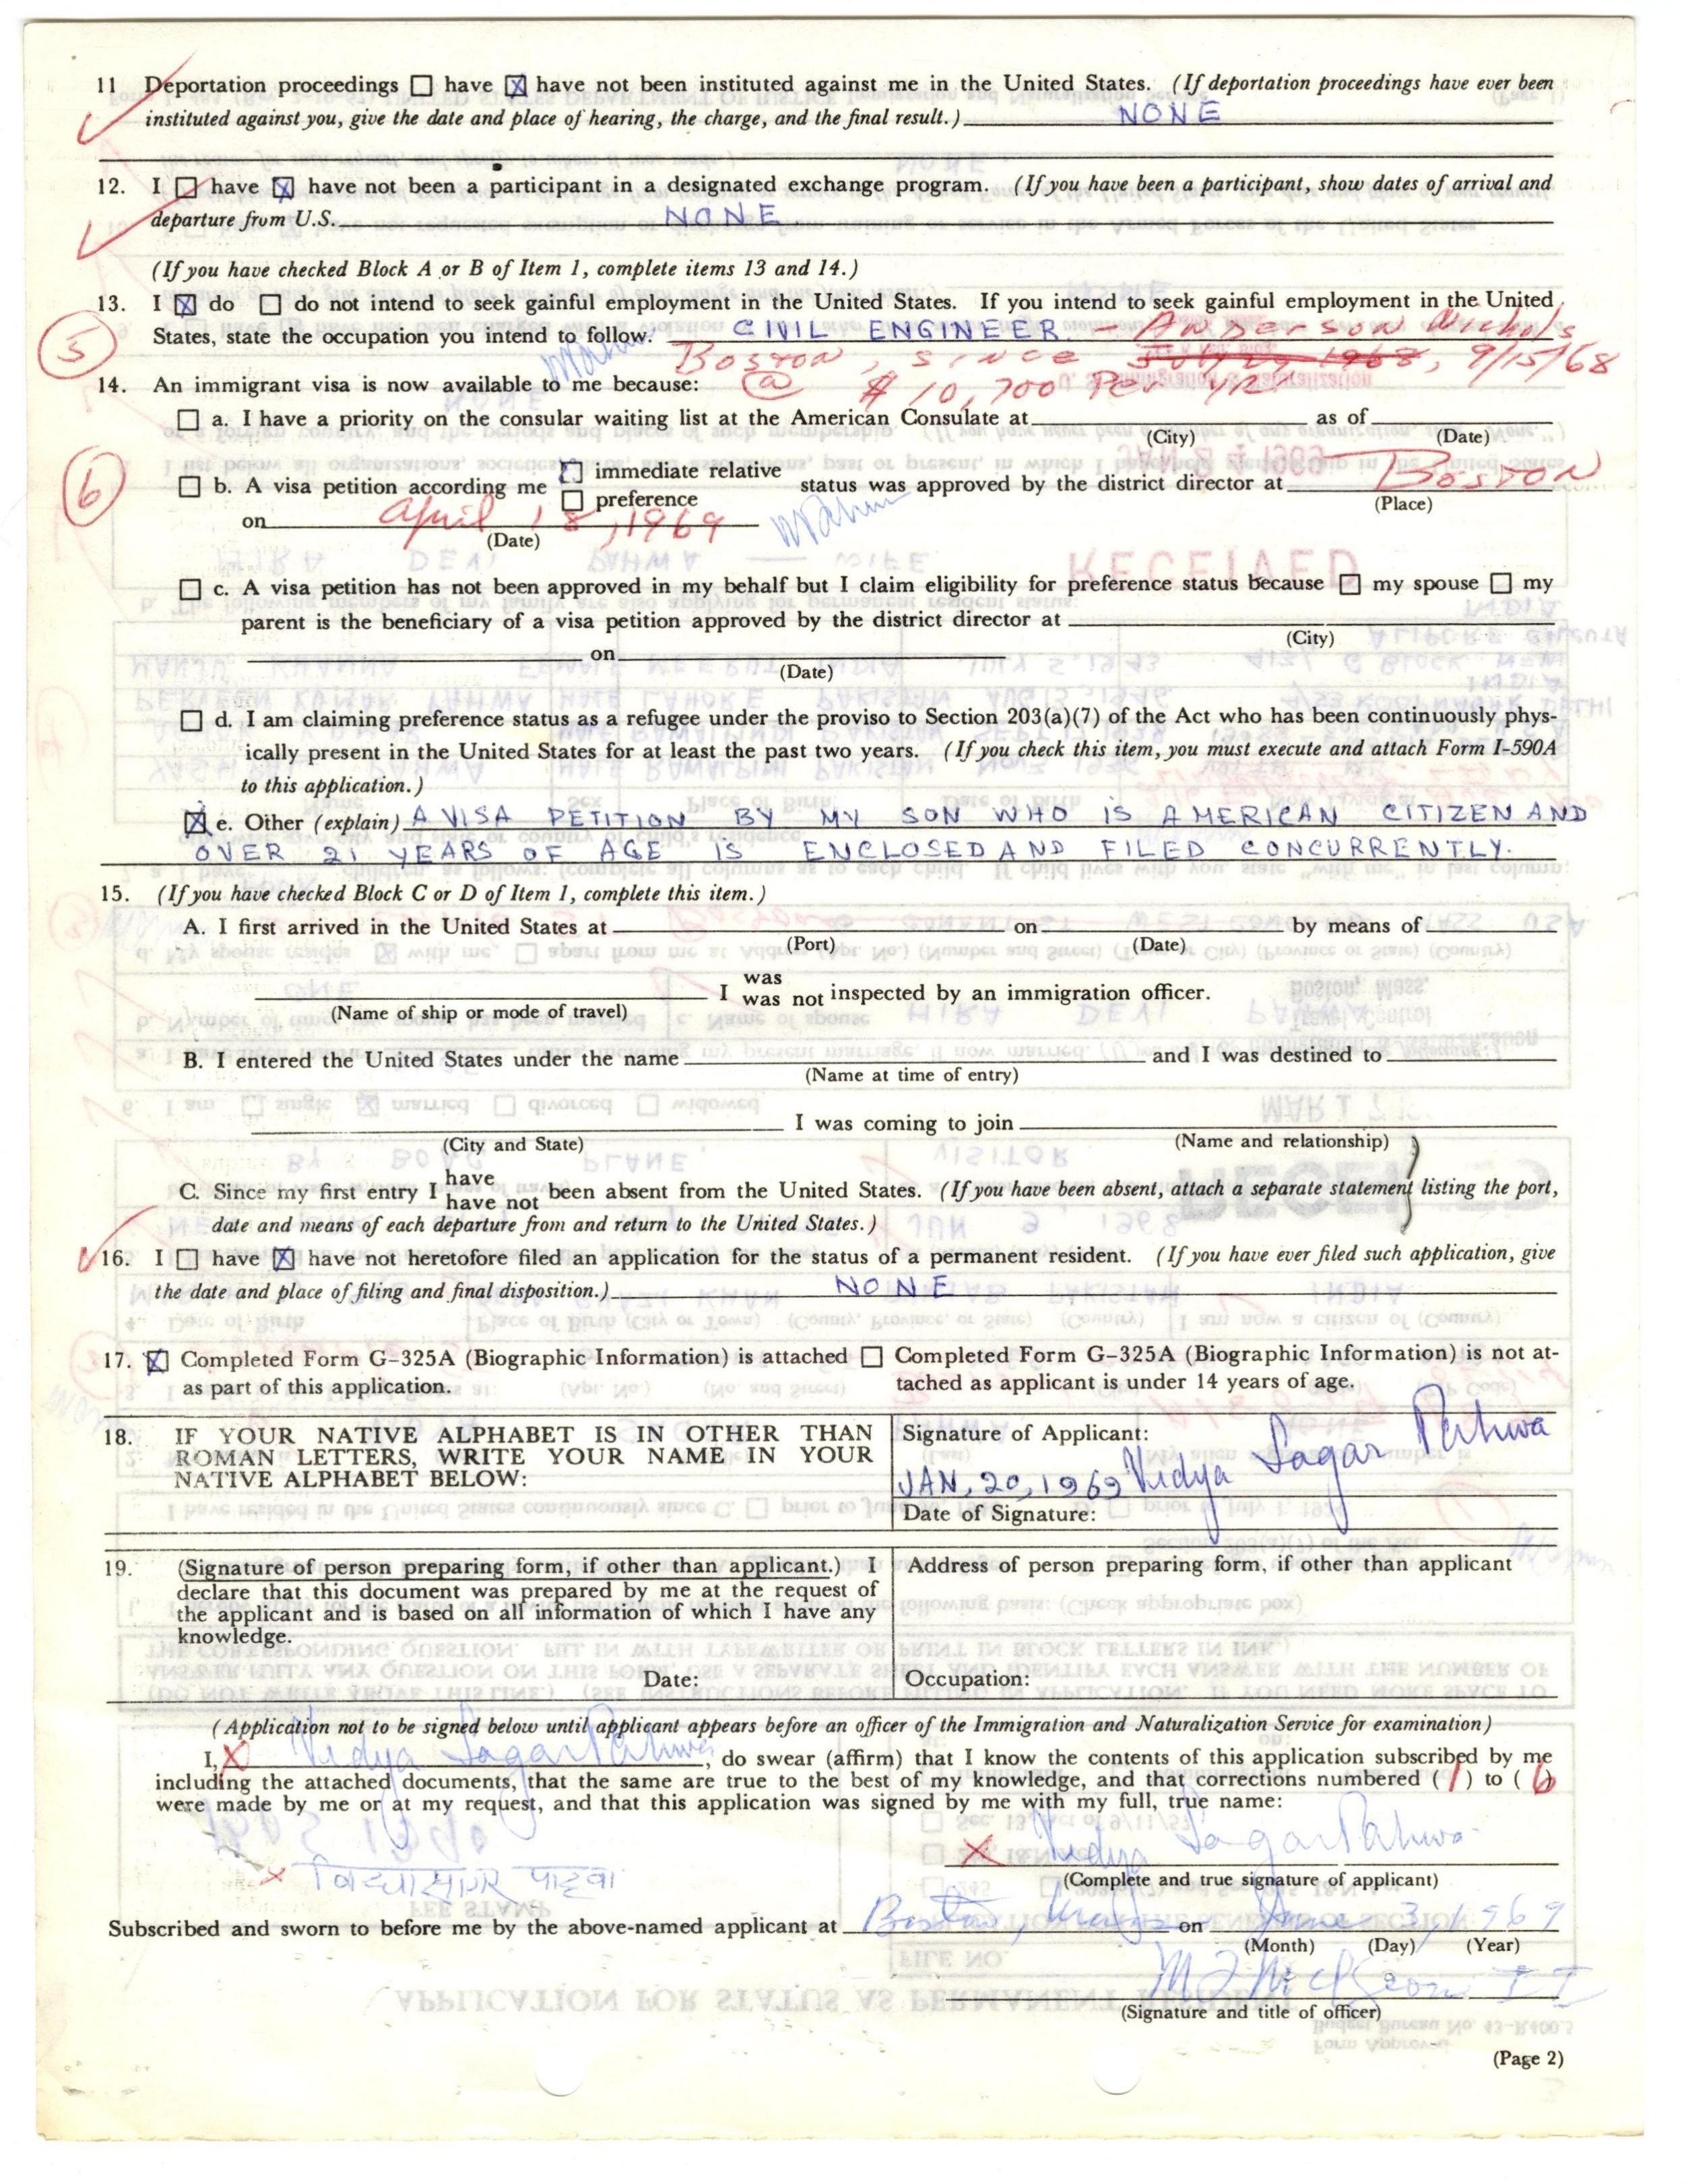 11 Deportation proceedings ☐ have ☒ have not been instituted against me in the United States. (If deportation proceedings have ever been
instituted against you, give the date and place of hearing, the charge, and the final result.) NONE
12. I ☐ have ☒ have not been a participant in a designated exchange program. (If you have been a participant, show dates of arrival and
departure from U.S. NONE
(If you have checked Block A or B of Item 1, complete items 13 and 14.)
13. I ☒ do ☐ do not intend to seek gainful employment in the United States. If you intend to seek gainful employment in the United
States, state the occupation you intend to follow. CIVIL ENGINEER - Anderson Nichols
5
Boston, since July 29 1968, 9/15/68
14. An immigrant visa is now available to me because: @ $10,700 Per yr
☐ a. I have a priority on the consular waiting list at the American Consulate at as of
(City) (Date)
6
☐ b. A visa petition according me ☐ immediate relative ☐ preference status was approved by the district director at Boston
(Place)
on April 18, 1969
(Date)
☐ c. A visa petition has not been approved in my behalf but I claim eligibility for preference status because ☐ my spouse ☐ my
parent is the beneficiary of a visa petition approved by the district director at
(City)
on
(Date)
☐ d. I am claiming preference status as a refugee under the proviso to Section 203(a)(7) of the Act who has been continuously phys-
ically present in the United States for at least the past two years. (If you check this item, you must execute and attach Form I-590A
to this application.)
☒ e. Other (explain) A VISA PETITION BY MY SON WHO IS AMERICAN CITIZEN AND
OVER 21 YEARS OF AGE IS ENCLOSED AND FILED CONCURRENTLY.
15. (If you have checked Block C or D of Item 1, complete this item.)
A. I first arrived in the United States at on by means of
(Port) (Date)
I was
was not inspected by an immigration officer.
(Name of ship or mode of travel)
B. I entered the United States under the name and I was destined to
(Name at time of entry)
I was coming to join
(City and State) (Name and relationship)
C. Since my first entry I have
have not been absent from the United States. (If you have been absent, attach a separate statement listing the port,
date and means of each departure from and return to the United States.)
16. I ☐ have ☒ have not heretofore filed an application for the status of a permanent resident. (If you have ever filed such application, give
the date and place of filing and final disposition.) NONE
17. ☒ Completed Form G-325A (Biographic Information) is attached ☐ Completed Form G-325A (Biographic Information) is not at-
as part of this application. tached as applicant is under 14 years of age.
18. IF YOUR NATIVE ALPHABET IS IN OTHER THAN
ROMAN LETTERS, WRITE YOUR NAME IN YOUR
NATIVE ALPHABET BELOW:
Signature of Applicant:
JAN, 20, 1969 Vidya Sagar Pahwa
Date of Signature:
19. (Signature of person preparing form, if other than applicant.) I
declare that this document was prepared by me at the request of
the applicant and is based on all information of which I have any
knowledge.
Date:
Address of person preparing form, if other than applicant
Occupation:
(Application not to be signed below until applicant appears before an officer of the Immigration and Naturalization Service for examination)
I, X Vidya Sagar Pahwa, do swear (affirm) that I know the contents of this application subscribed by me
including the attached documents, that the same are true to the best of my knowledge, and that corrections numbered (1) to (6)
were made by me or at my request, and that this application was signed by me with my full, true name:
X Vidya Sagar Pahwa
(Complete and true signature of applicant)
x विद्यासागर पाहवा
Subscribed and sworn to before me by the above-named applicant at Boston, Mass on June 3, 1969
(Month) (Day) (Year)
(Signature and title of officer)
(Page 2)